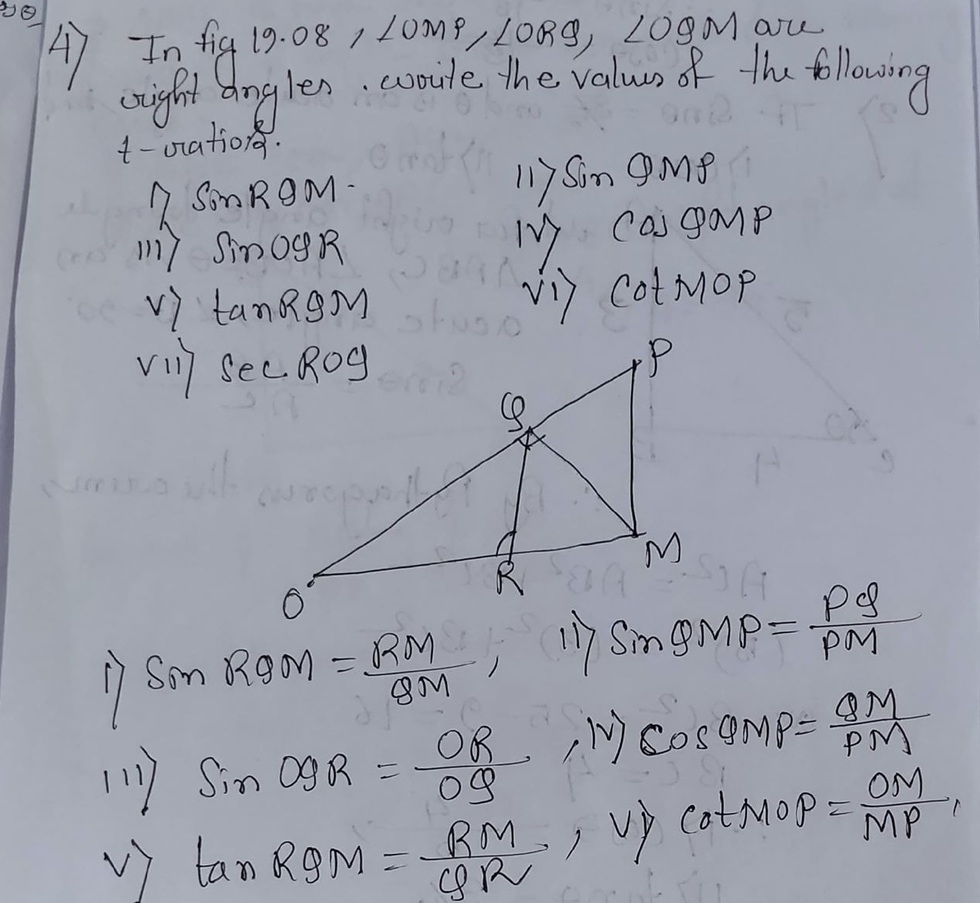 4) In fig 19.08, ∠OMP, ∠ORQ, ∠OQM are
right angles. write the values of the following
t-ratios.
i) Sin RQM. ii) Sin QMP
iii) Sin OQR iv) Cos QMP
v) tan RQM vi) Cot MOP
vii) Sec ROQ
P
Q
M
R
O
i) Sin RQM = RM/QM, ii) Sin QMP = PQ/PM
iii) Sin OQR = OR/OQ, iv) Cos QMP = QM/PM
v) tan RQM = RM/QR, vi) cot MOP = OM/MP,